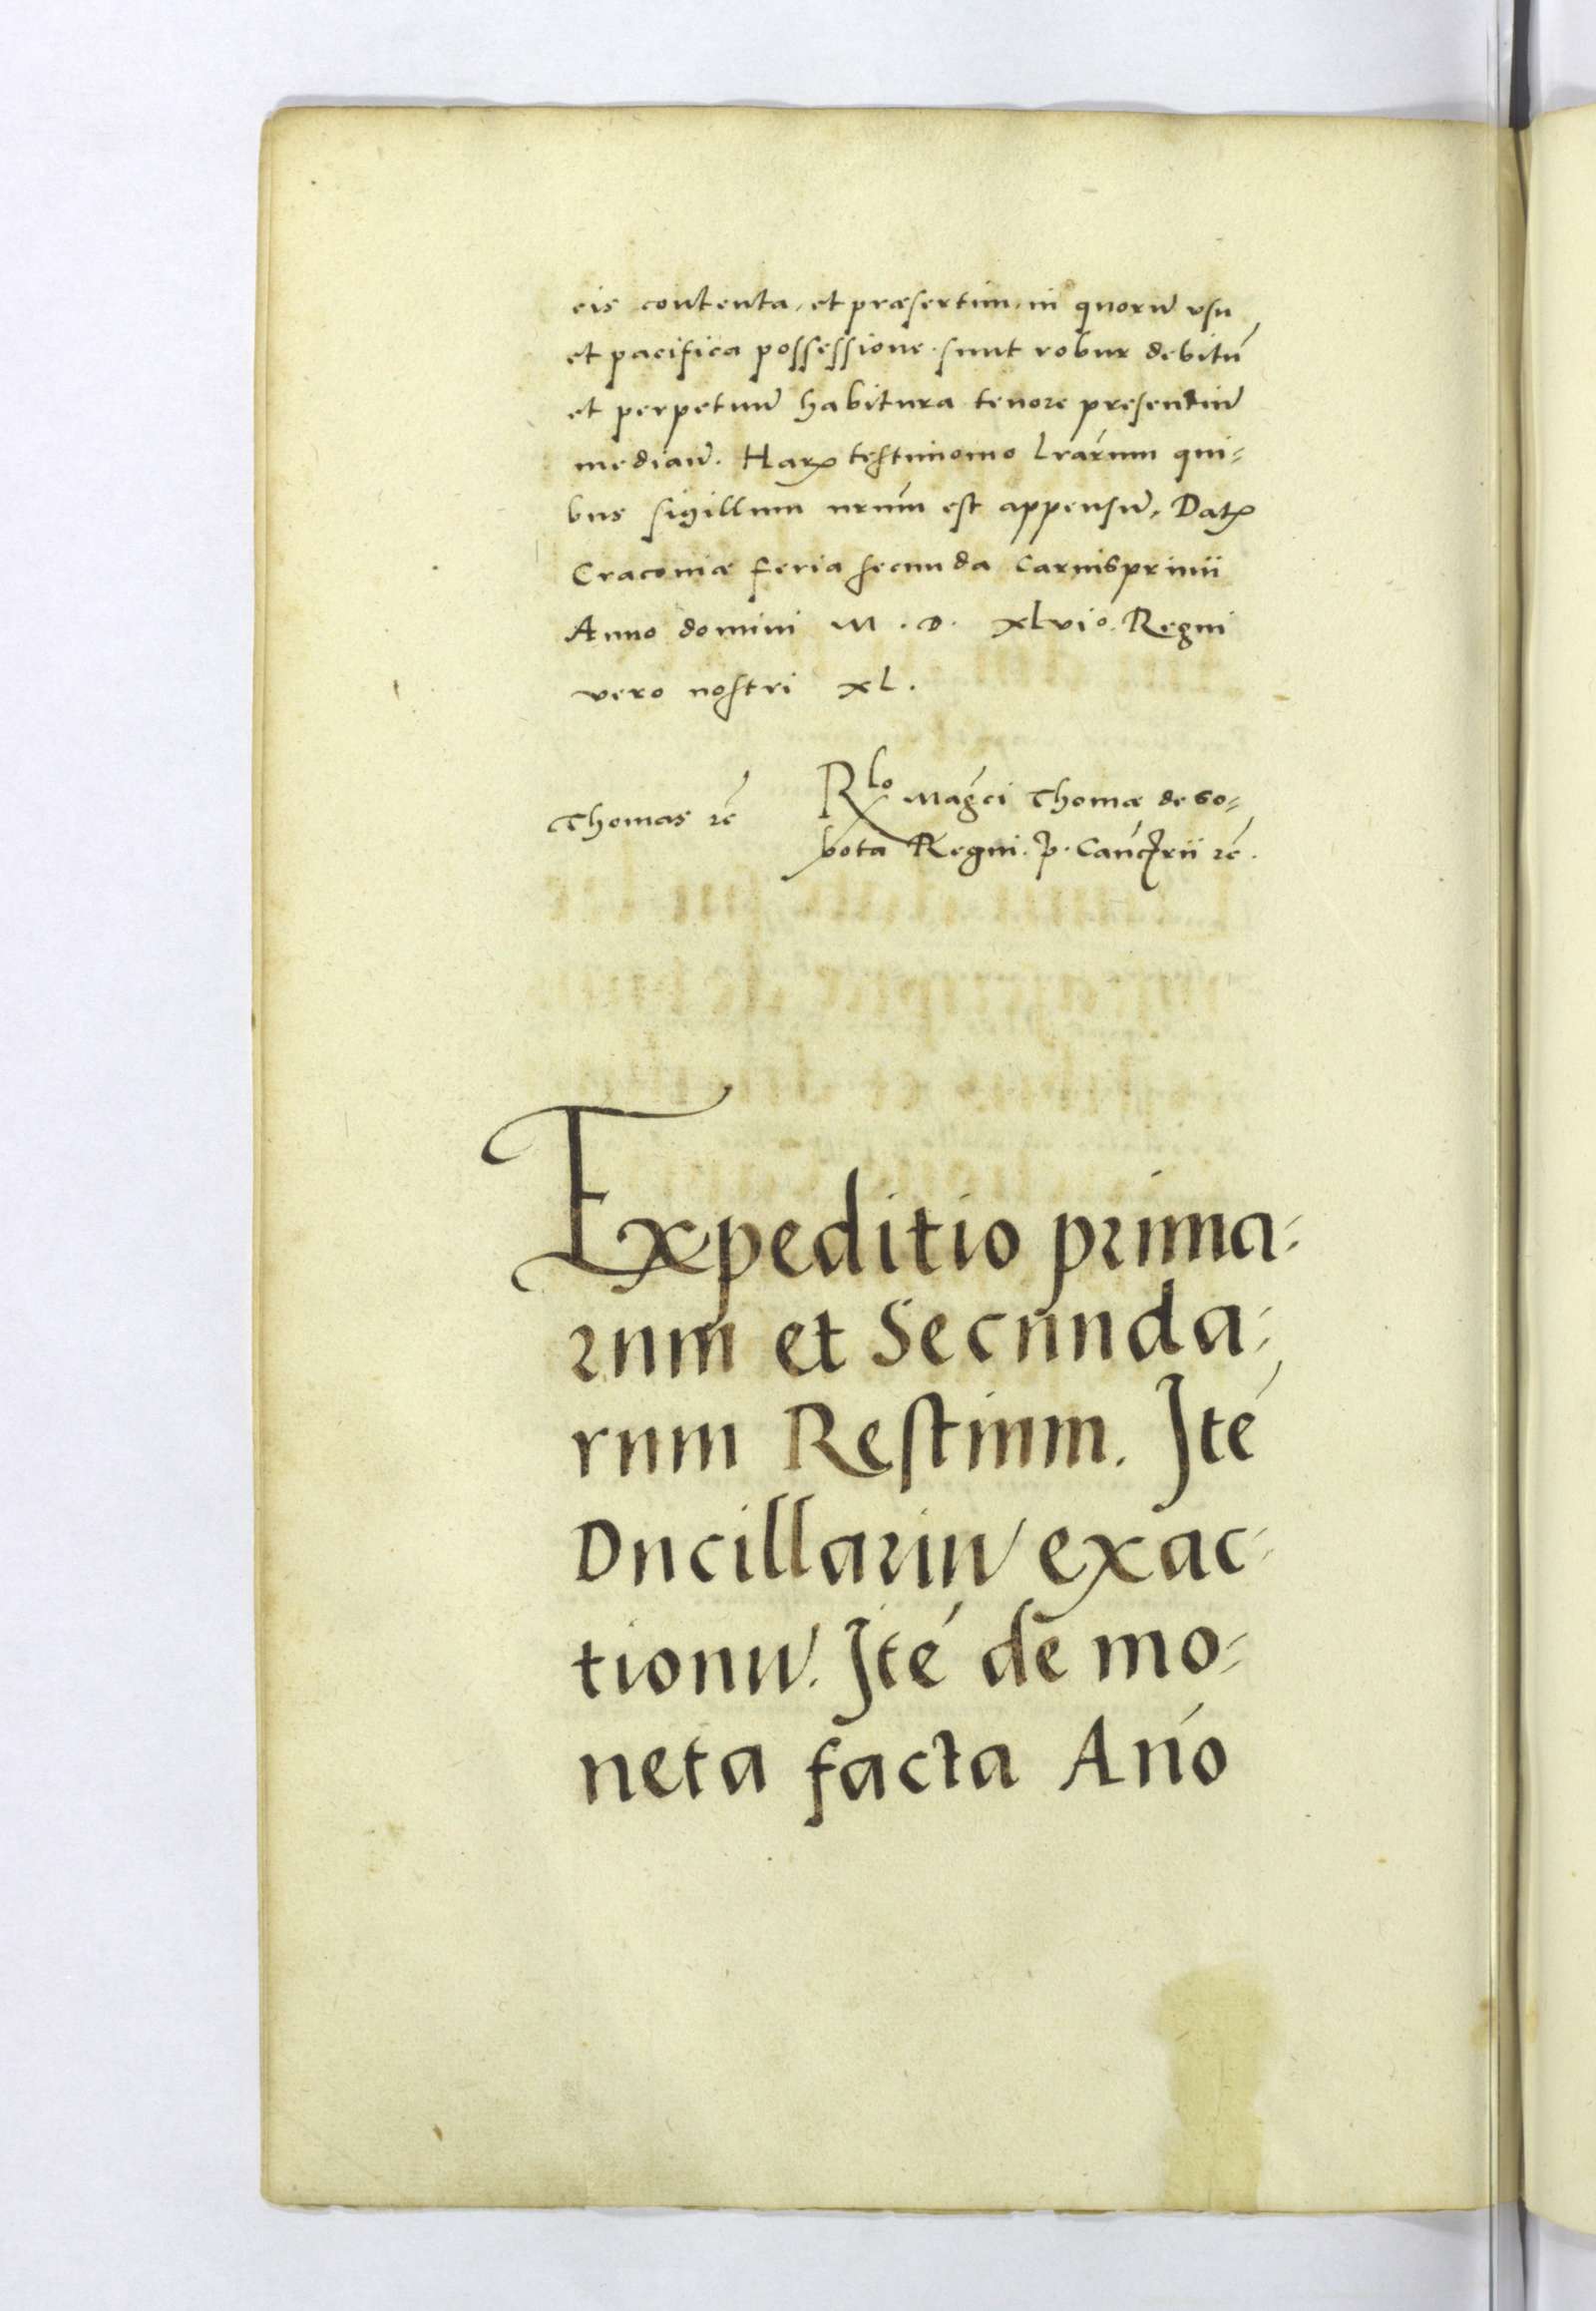 eis contenta, et præsertim, in quorũ vsu
et pacifica possessione sunt robur debitũ
et perpetuũ habitura tenore presentiũ
mediañ. Harꝝ testimonio lrárum qui-
bus sigillum nrúm est appensũ. Datꝝ
Cracoviæ feria secunda carnisprivii
Anno domini M. D. xlvio. Regni
vero nostri xl.
Thomas zc̃
Rlo Magci Thomæ de So-
bota Regni. p. Cancrii zc̃.
Expeditio prima-
rum et Secunda-
rum Restium. Jté
Ducillariũ exac-
tionũ. Jté de mo-
neta facta Anó